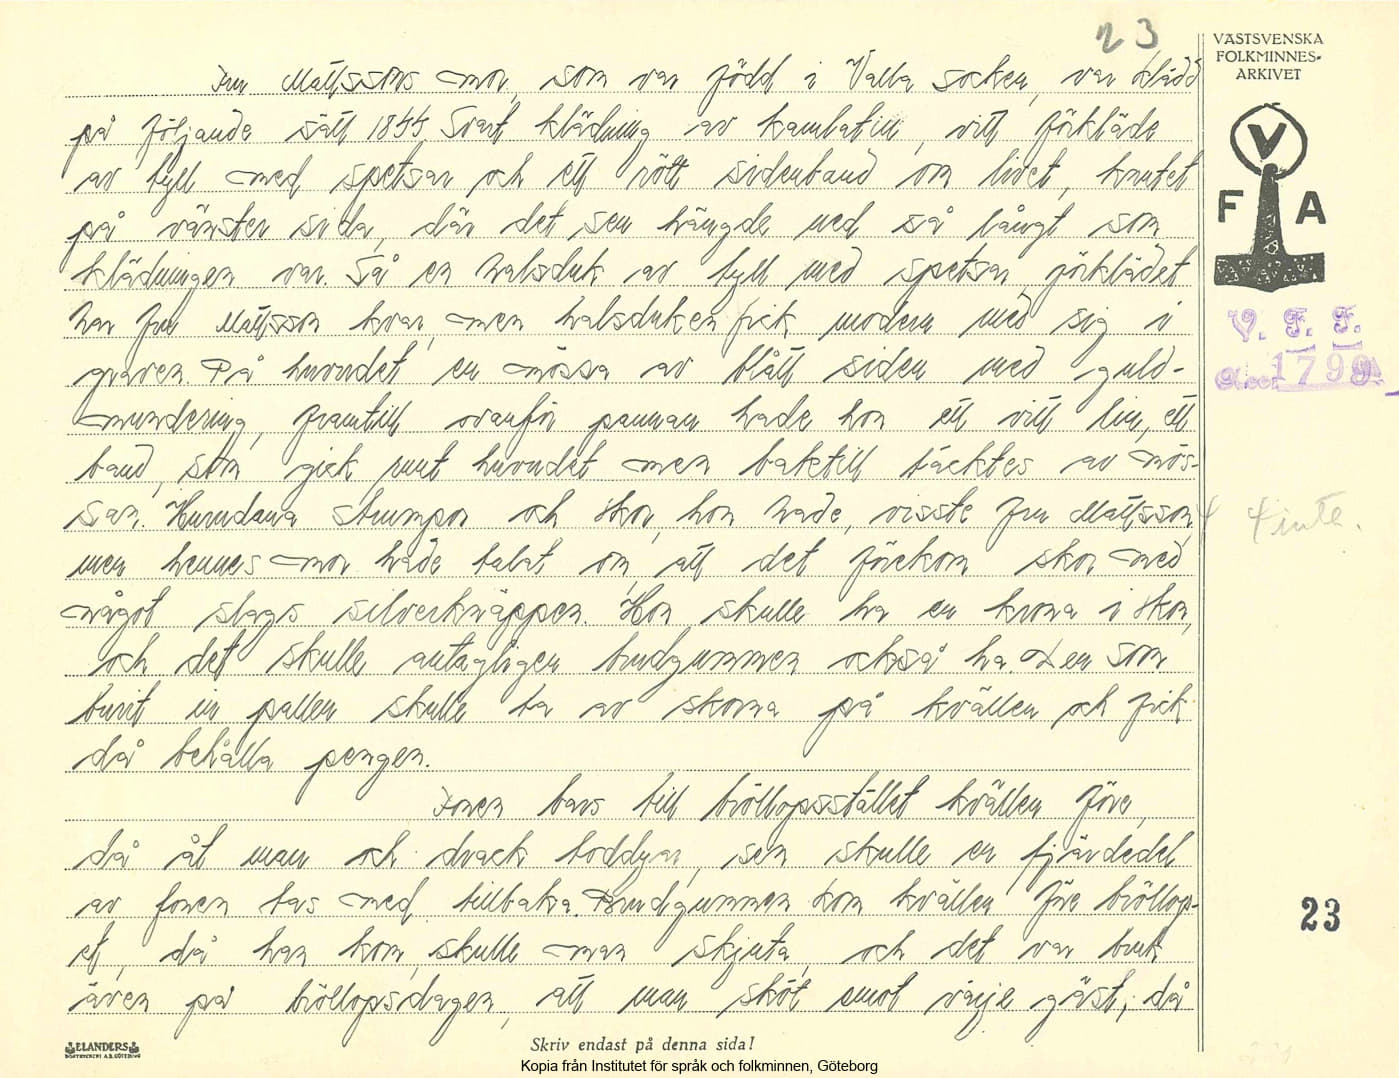 23
VÄSTSVENSKA
FOLKMINNES-
ARKIVET
Fru Mattssons mor, som var född i Valla socken, var klädd
på följande sätt 1855. Svart klädning av kambatin, vitt förkläde
av tyll med spetsar och ett rött sidenband om livet, knutet
på vänster sida, där det sen hängde ned så långt som
klädningen var. Så en halsduk av tyll med spetsar, förklädet
har fru Mattsson kvar, men halsduken fick modern med sig i
graven. På huvudet en mössa av blått siden med guld-
mundering, framtill ovanför pannan hade hon ett vitt lin, ett
band, som gick runt huvudet men baktill täcktes av mös-
san. Hurudana strumpor och skor, hon hade, visste fru Mattsson,
4 4 inte.
men hennes mor hade talat om, att det förekom skor med
något slags silverknäppen. Hon skulle ha en krona i skon,
och det skulle antagligen brudgummen också ha. Den som
burit in pallen skulle ta av skorna på kvällen och fick
då behålla pengen.
Fonen bars till bröllopsstället kvällen före,
då åt man och drack toddyar, sen skulle en fjärdedel
av fonen tas med tillbaka. Brudgummen kom kvällen före bröllop-
et, då han kom, skulle man skjuta, och det var bruk
även på bröllopsdagen, att man sköt emot varje gäst, då
V
F A
V. F. F.
Acc. 1799
23
ELANDERS
BOKTRYCKERI A.B. GÖTEBORG
Skriv endast på denna sida!
Kopia från Institutet för språk och folkminnen, Göteborg